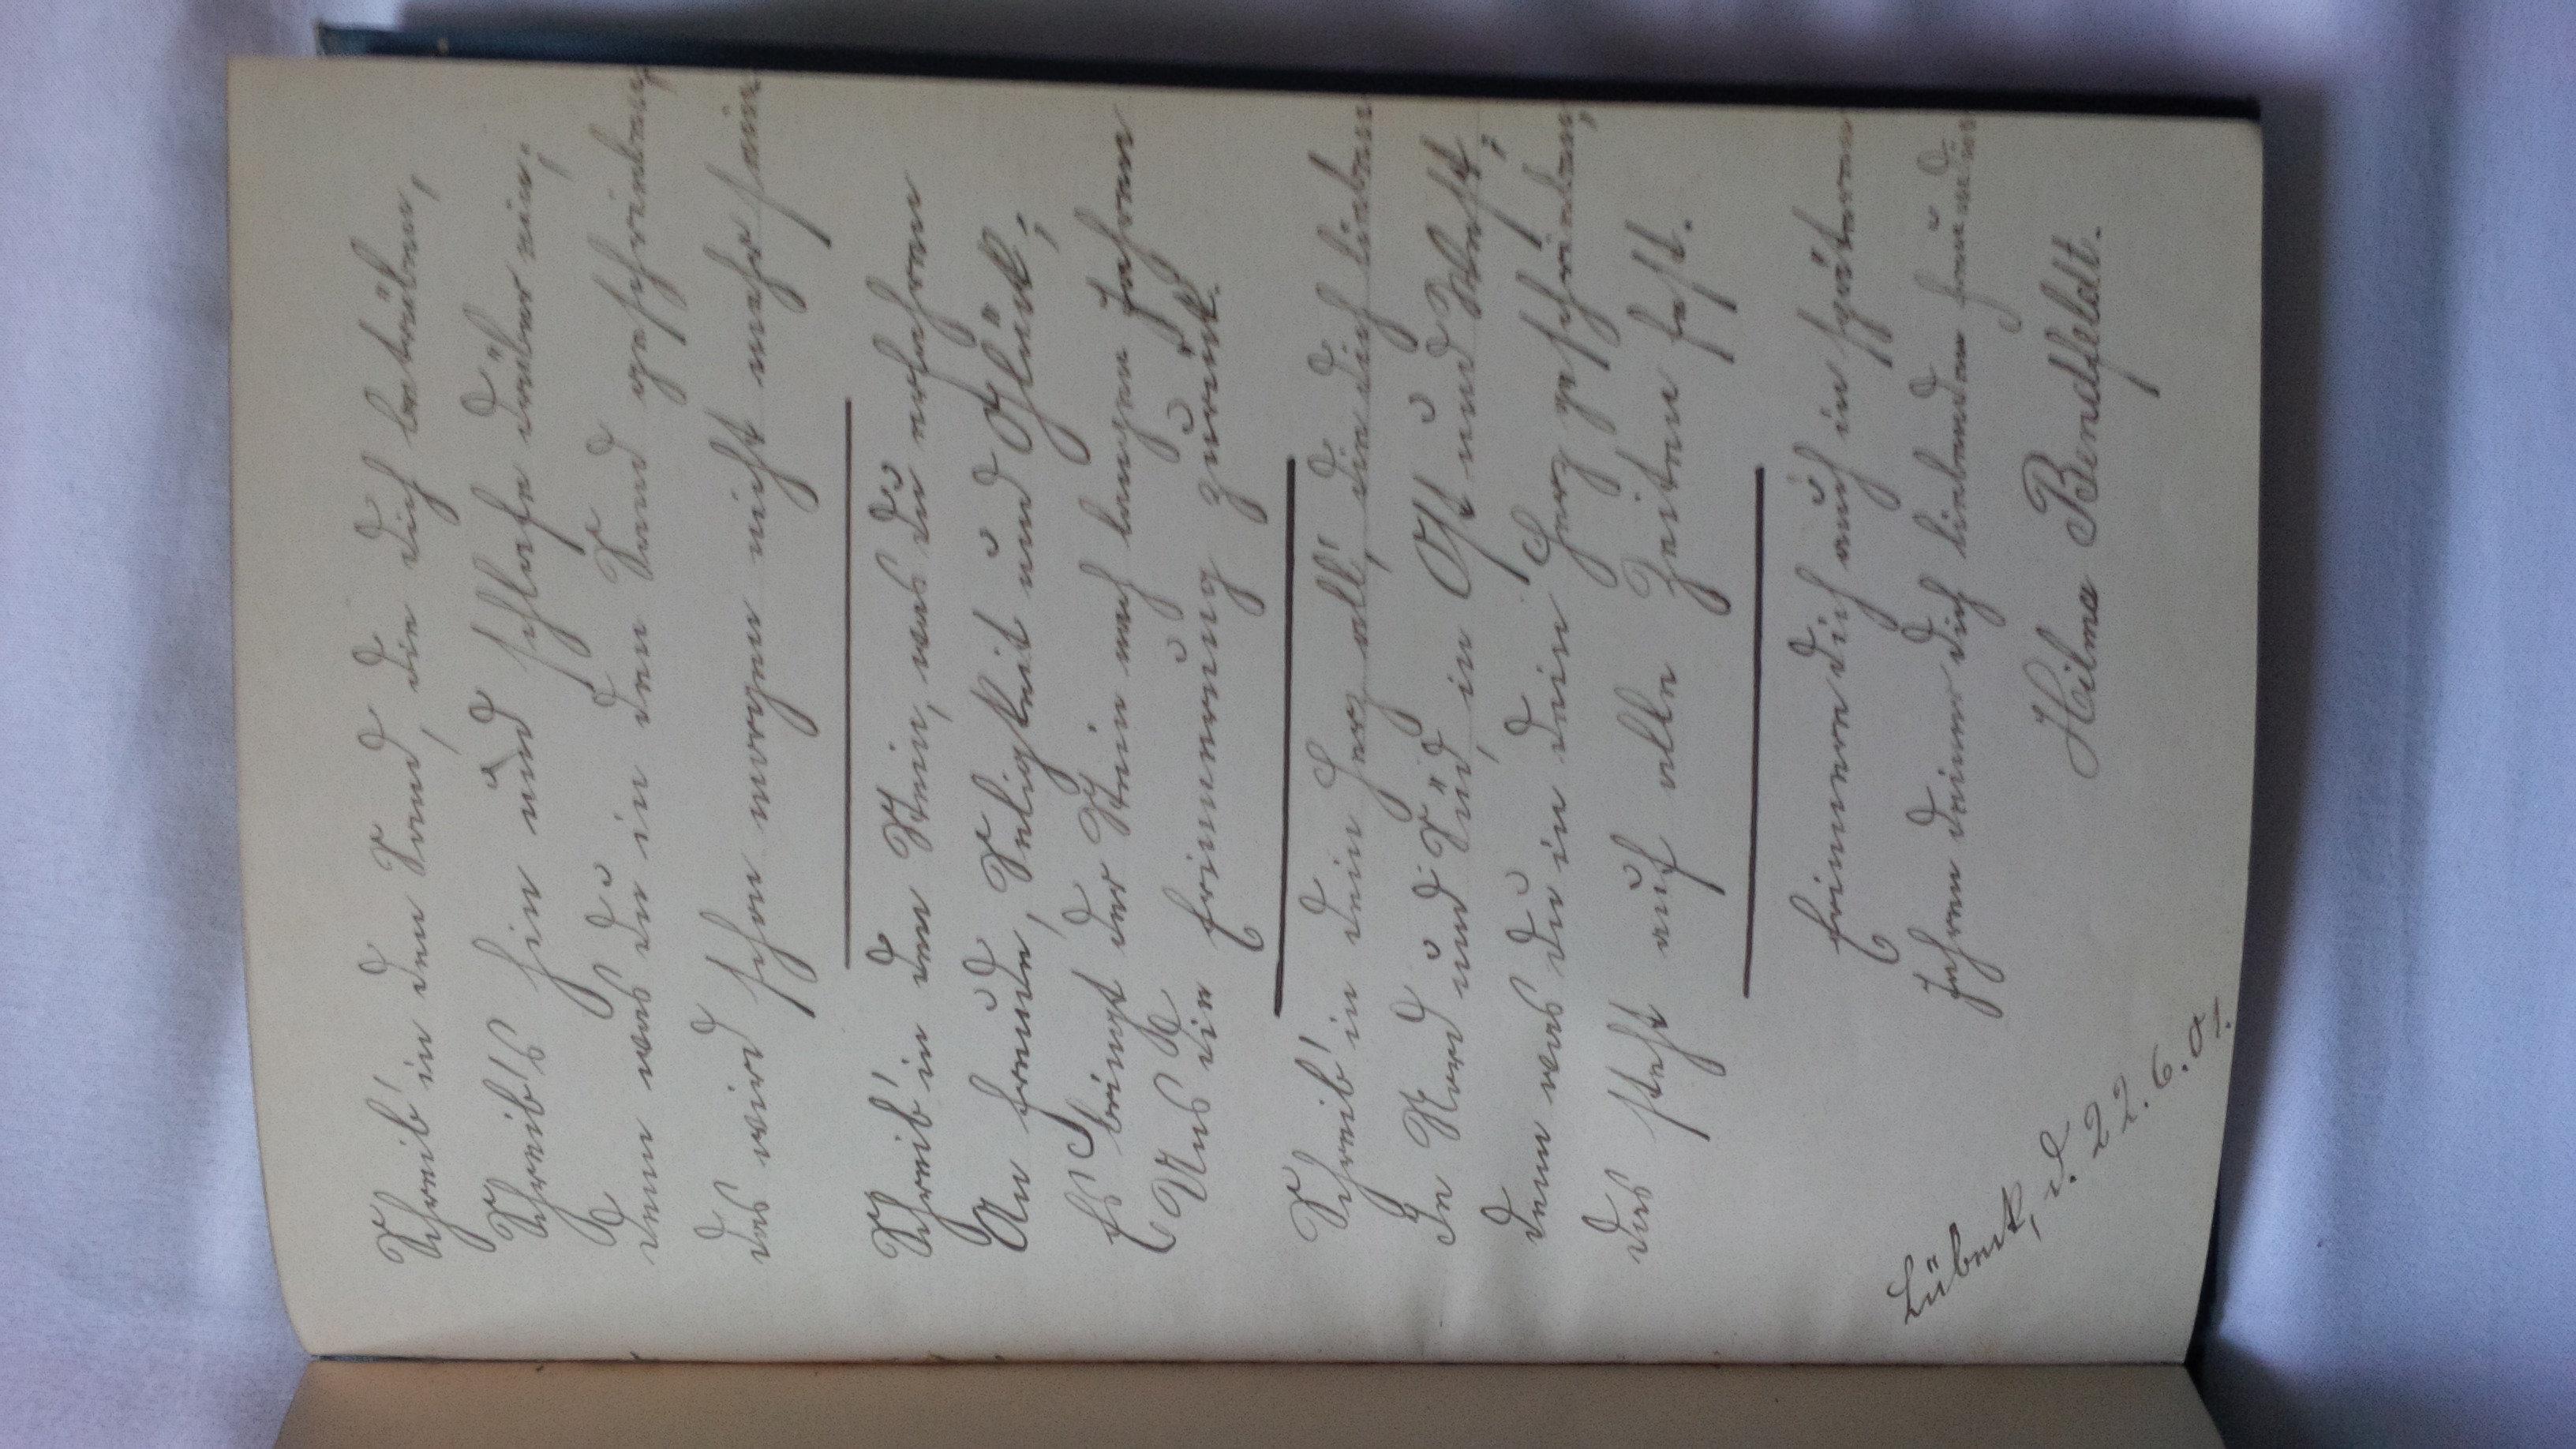 Schreib' in den Sand, die dich betrüben,
Schreib's hin und schlafe drüber ein;
Denn was du in den Sand geschrieben
das wird schon morgen nicht mehr sein
Schreib' in den Stein, was du erfahren
An Freude, Seligkeit und Glück,
Es bringt der Stein nach langen Jahren
Uns die Erinnerung zurück.
Schreib' in dein Herz all', die dich lieben
In Nord und Süd, in Ost und West,
Denn was du in dein Herz geschrieben,
Das steht auf alle Zeiten fest.
Erinnere dich auch in späteren
Jahren deiner dich liebenden Freundin
Heilma Bendfeldt.
Lübeck, d. 22.6.01.